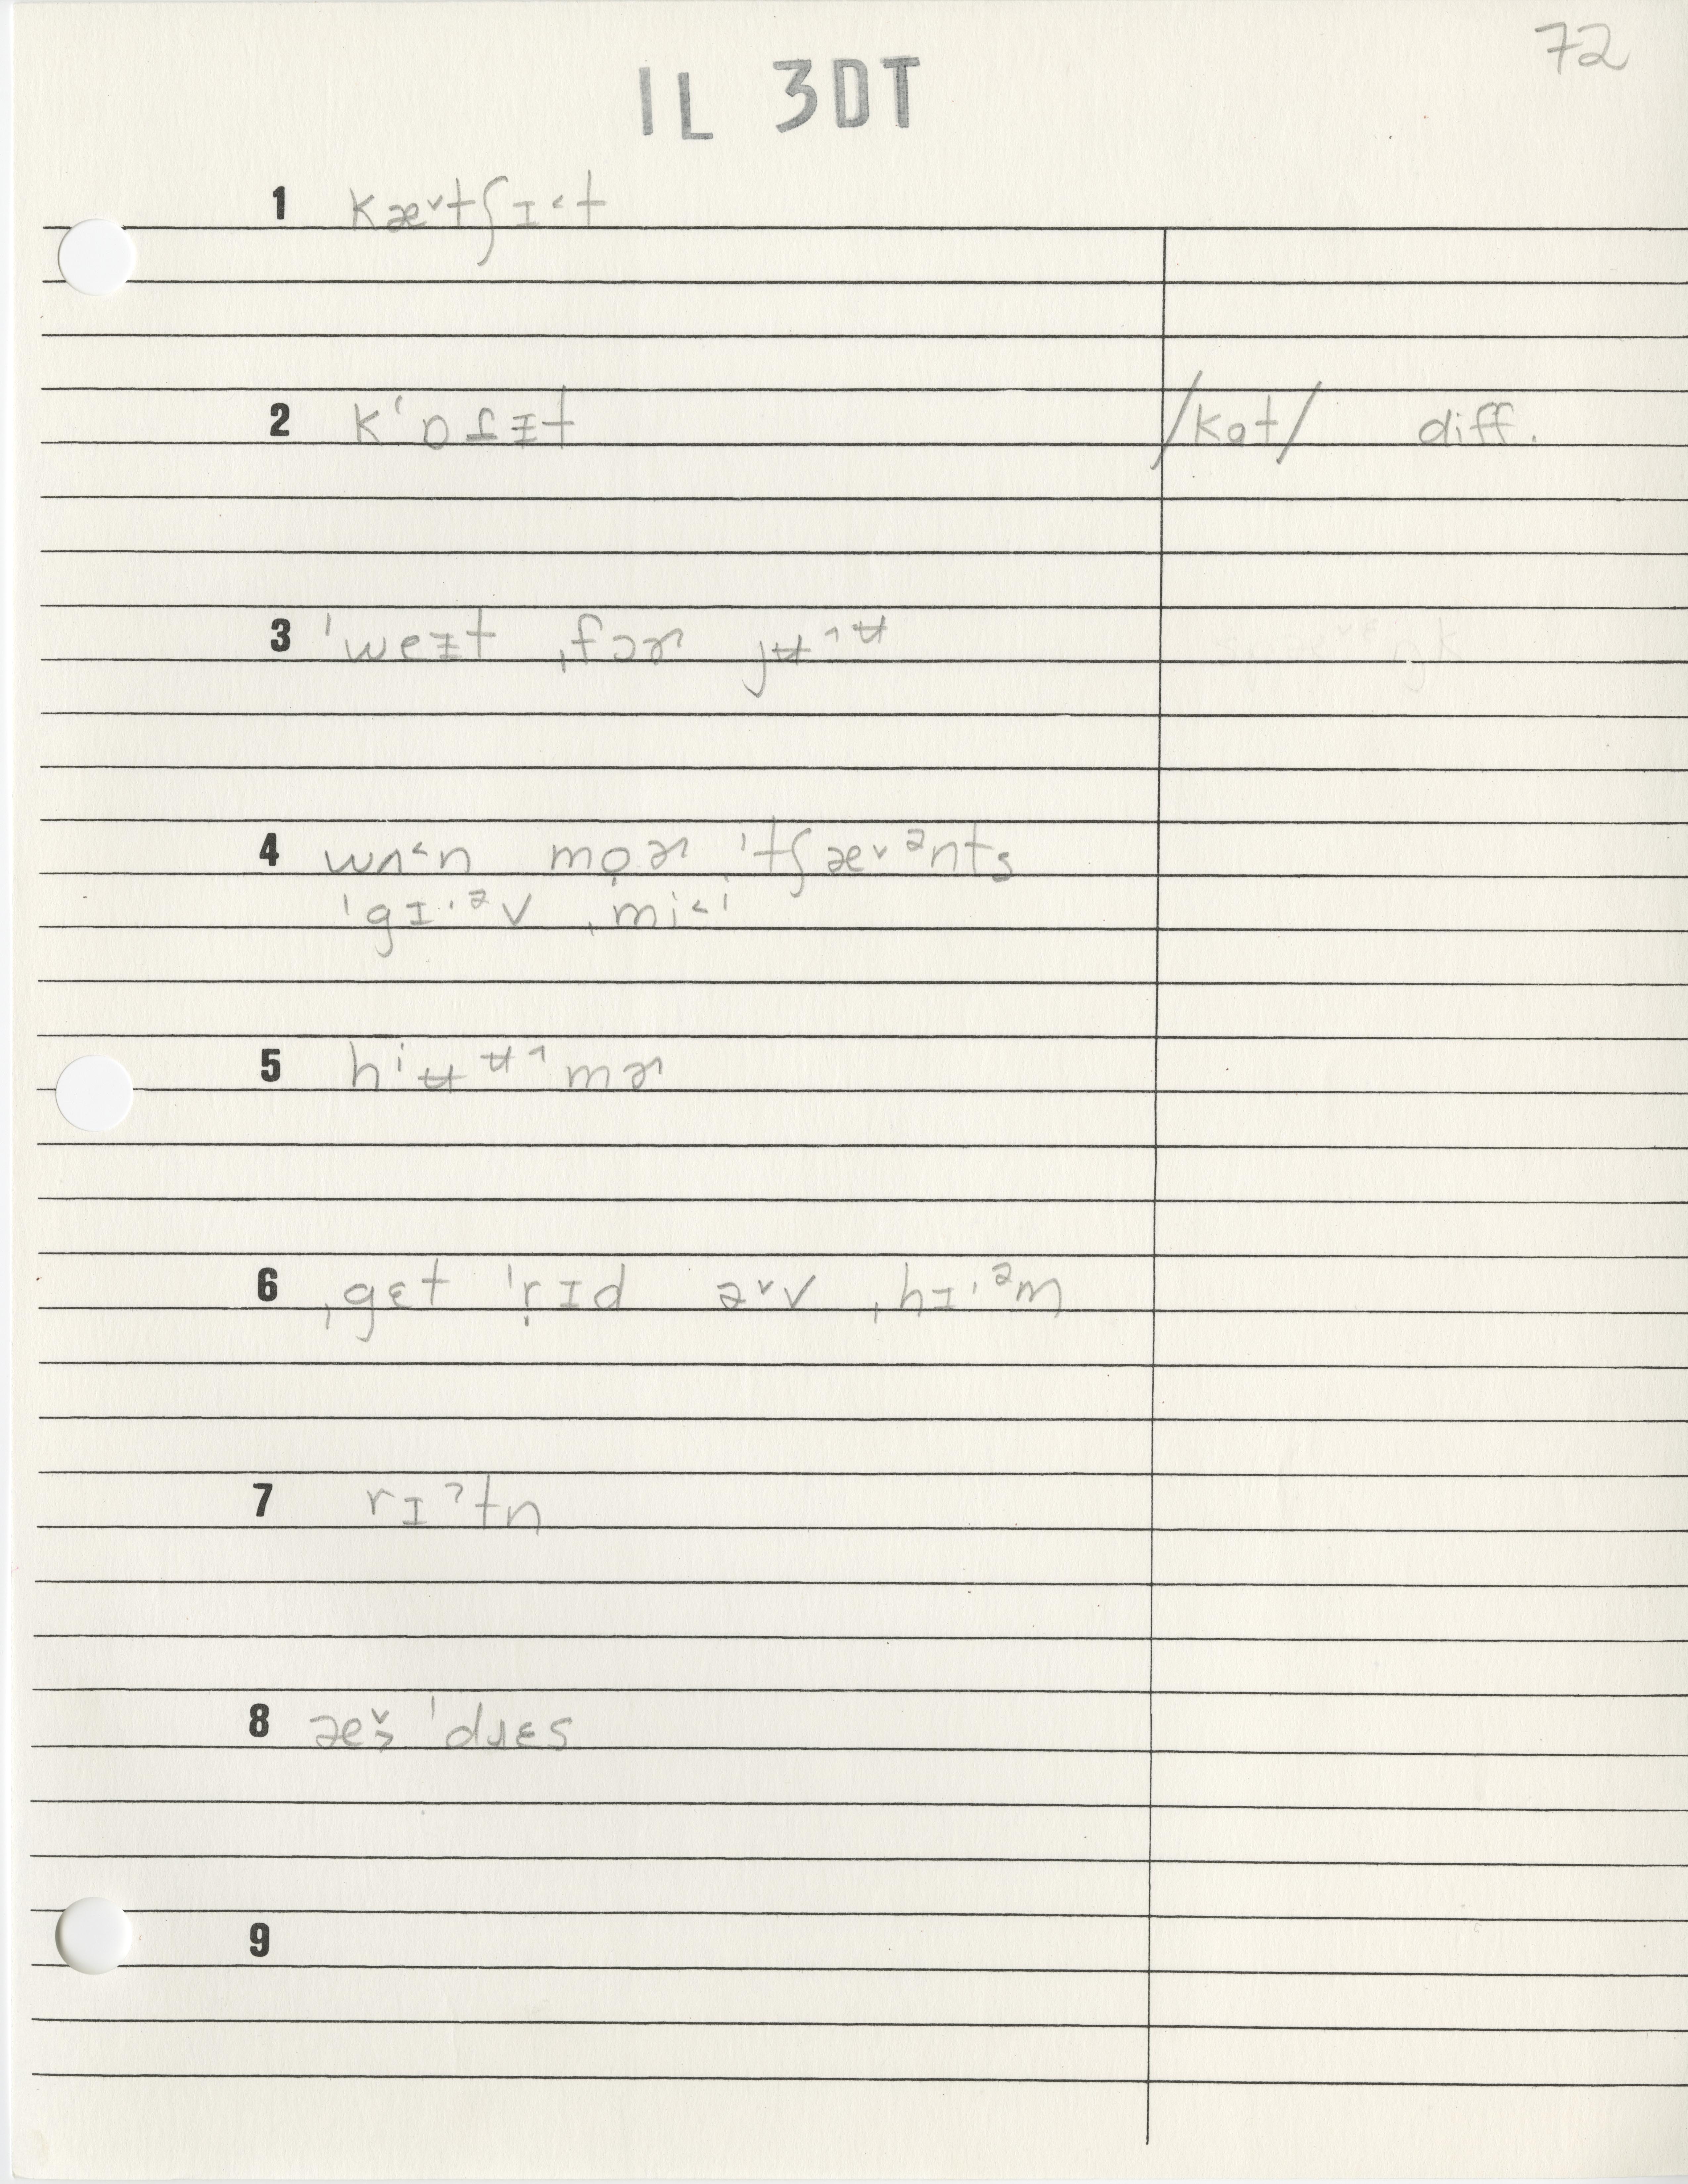 72
1L 3DT
1 kæ˅tʃɪ˂t
2 k'ɒɾɪ̵t
/kat/ diff.
3 ˈweɪ̵t ˌfɔɚ jʉ˄ʉ
4 wʌ˂n mo̞ɚ ˈtʃæ˅ᵊnts
ˈgɪ·ᵊv ˌmi˂i
5 hiʉʉ˄mɚ
6 ˌgɛt ˈrɪd ə˅v ˌhɪ·ᵊm
7 rɪˀtn
8 æš ˈdɹɛs
9